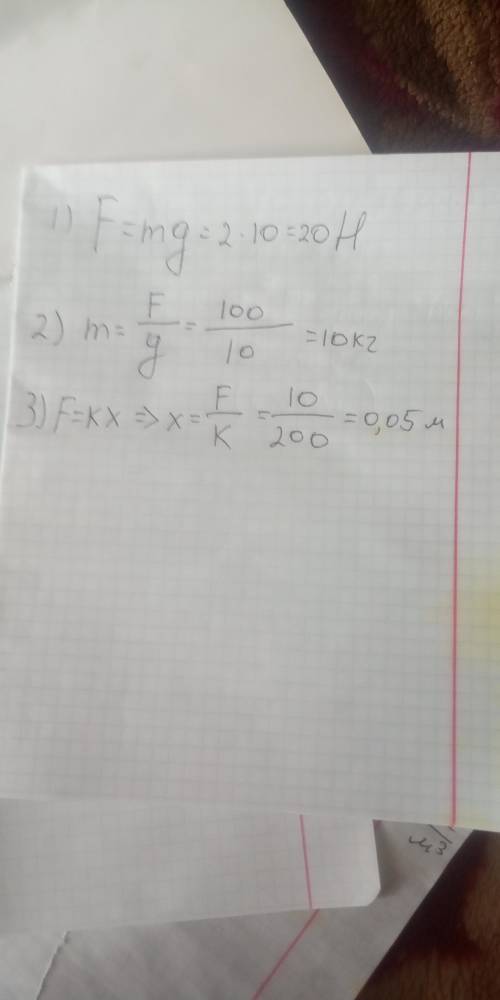 1) F=mg=2·10=20Н
2) m=F/g=100/10=10кг
3) F=kx=>x=F/k=10/200=0,05м
м3